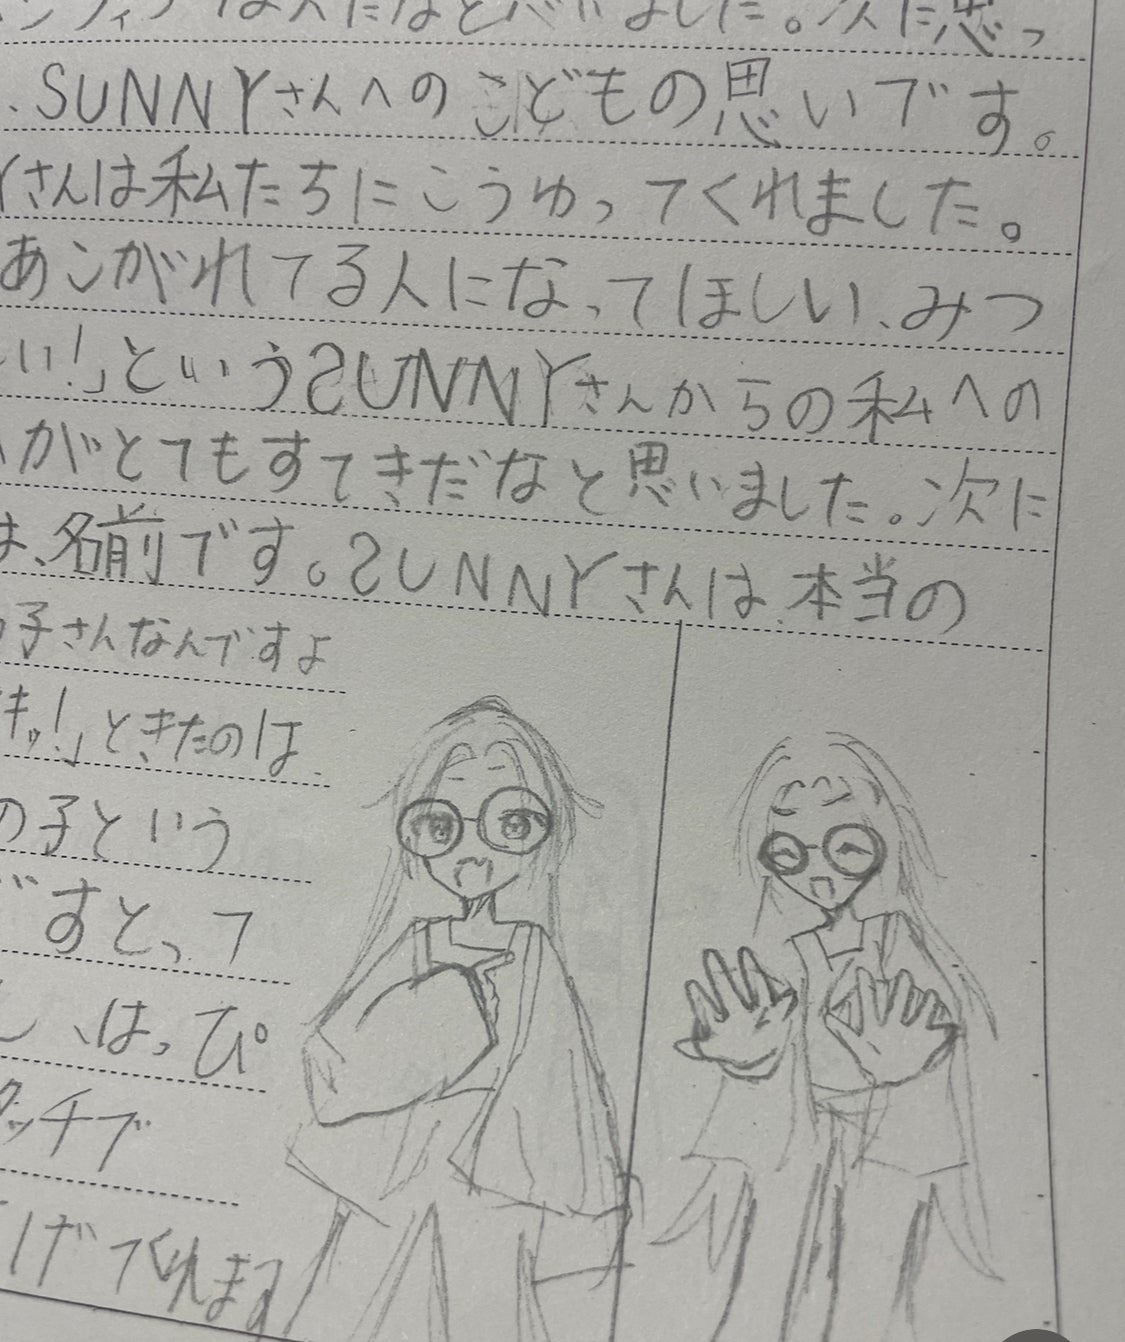 なと思いました。次に思っ
、SUNNYさんへのこどもの思いです。
Yさんは私たちにこうゆってくれました。
あこがれてる人になってほしい、みつ
い!」というSUNNYさんからの私への
がとてもすてきだなと思いました。次に
は、名前です。SUNNYさんは、本当の
子さんなんですよ
キッ!」ときたのは
の子という
ですとって
、はっぴ
タッチブ
げてくれます